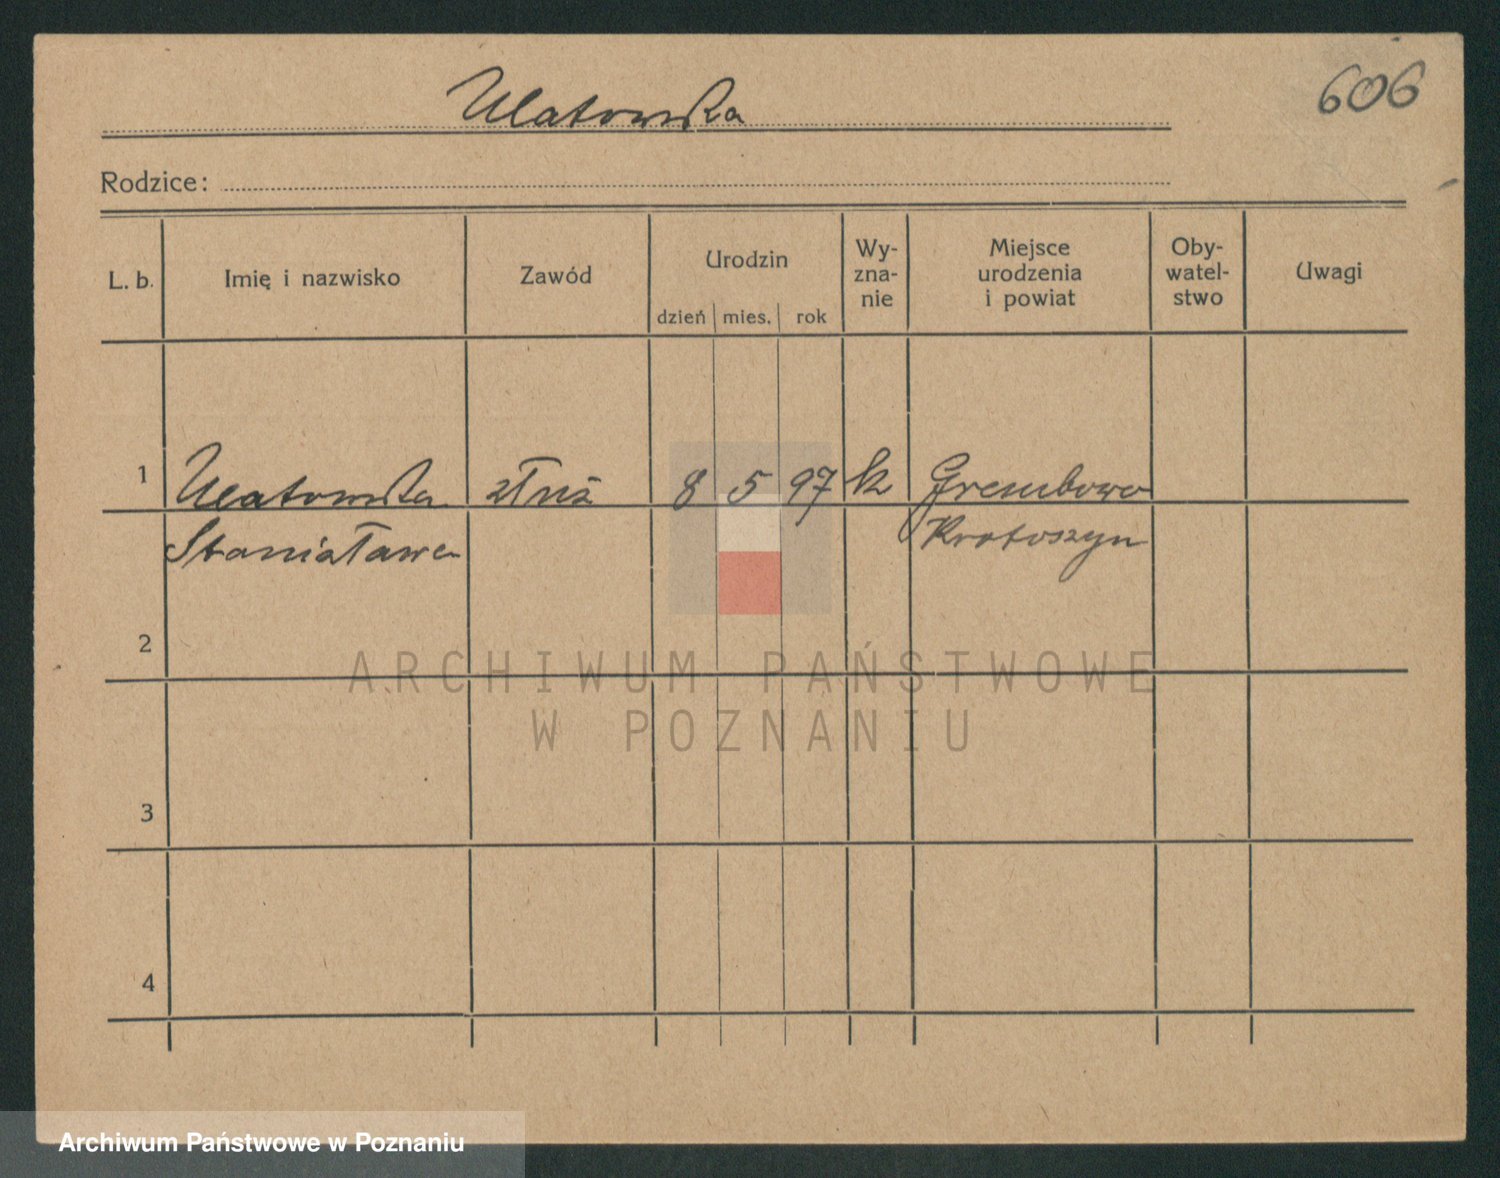 606
Ulatowska
Rodzice:
L. b.
Imię i nazwisko
Zawód
Urodzin
dzień mies. rok
Wy-
zna-
nie
Miejsce
urodzenia
i powiat
Oby-
watel-
stwo
Uwagi
1 Ulatowska 8 5 97 k Grembowo
Stanisława Krotoszyn
2
3
4
ARCHIWUM PAŃSTWOWE
W POZNANIU
Archiwum Państwowe w Poznaniu